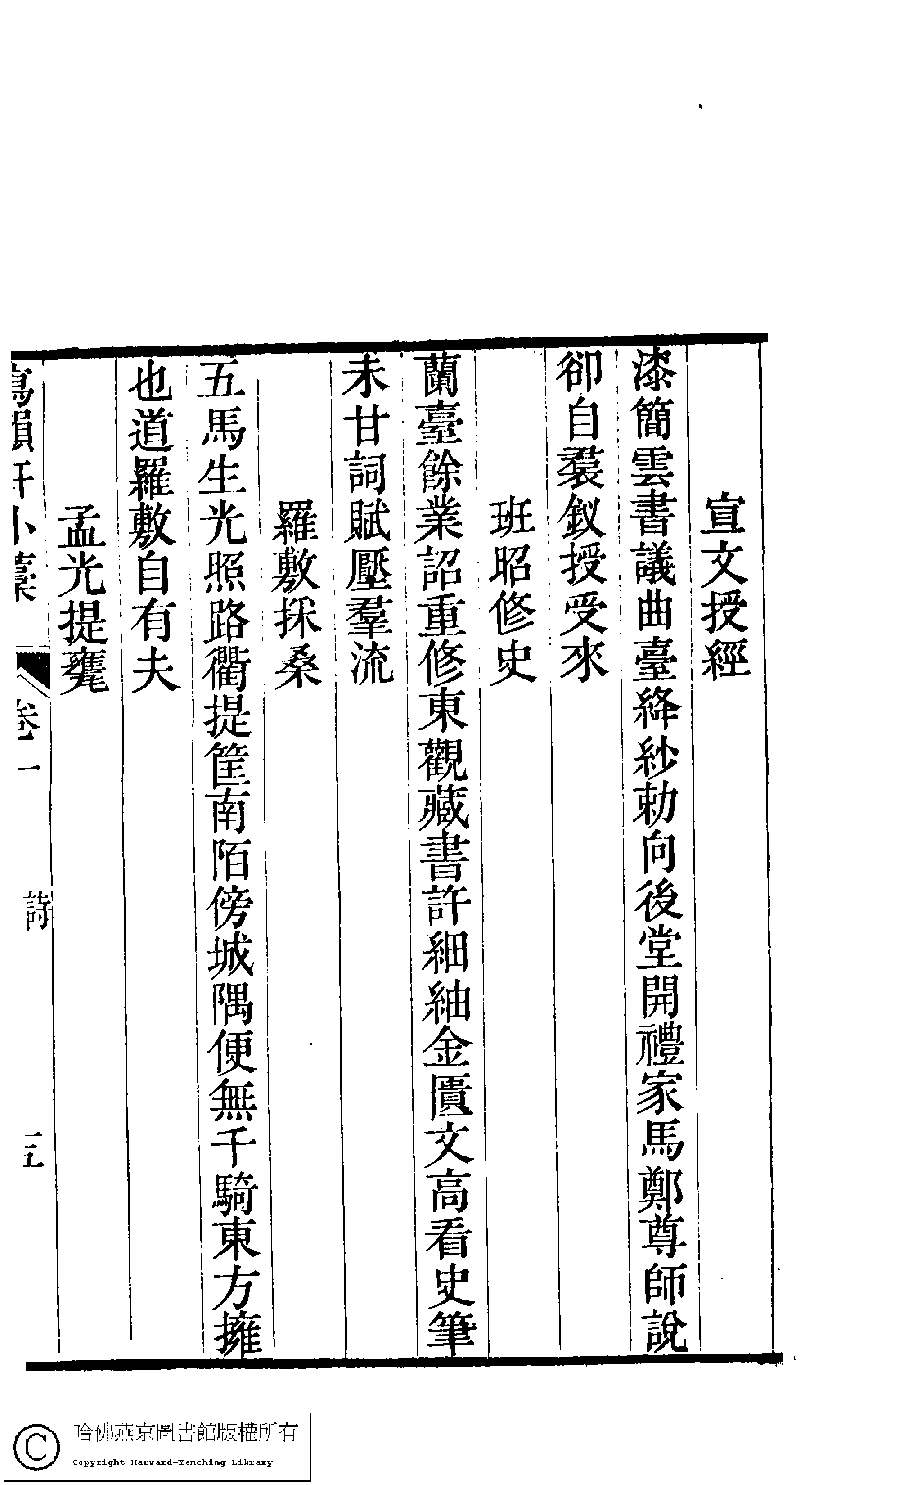 宣文授經
漆簡雲書議曲臺絳紗勅向後堂開禮家馬鄭尊師說
卻自裠釵授受來
班昭修史
蘭臺餘業詔重修東觀藏書許細紬金匱文高看史筆
未甘詞賦壓羣流
羅敷採桑
五馬生光照路衢提筐南陌傍城隅便無千騎東方擁
也道羅敷自有夫
孟光提甕
寫韻軒小藁
卷一
詩
三
哈佛燕京圖書館版權所有
Copyright Harvard-Yenching Library